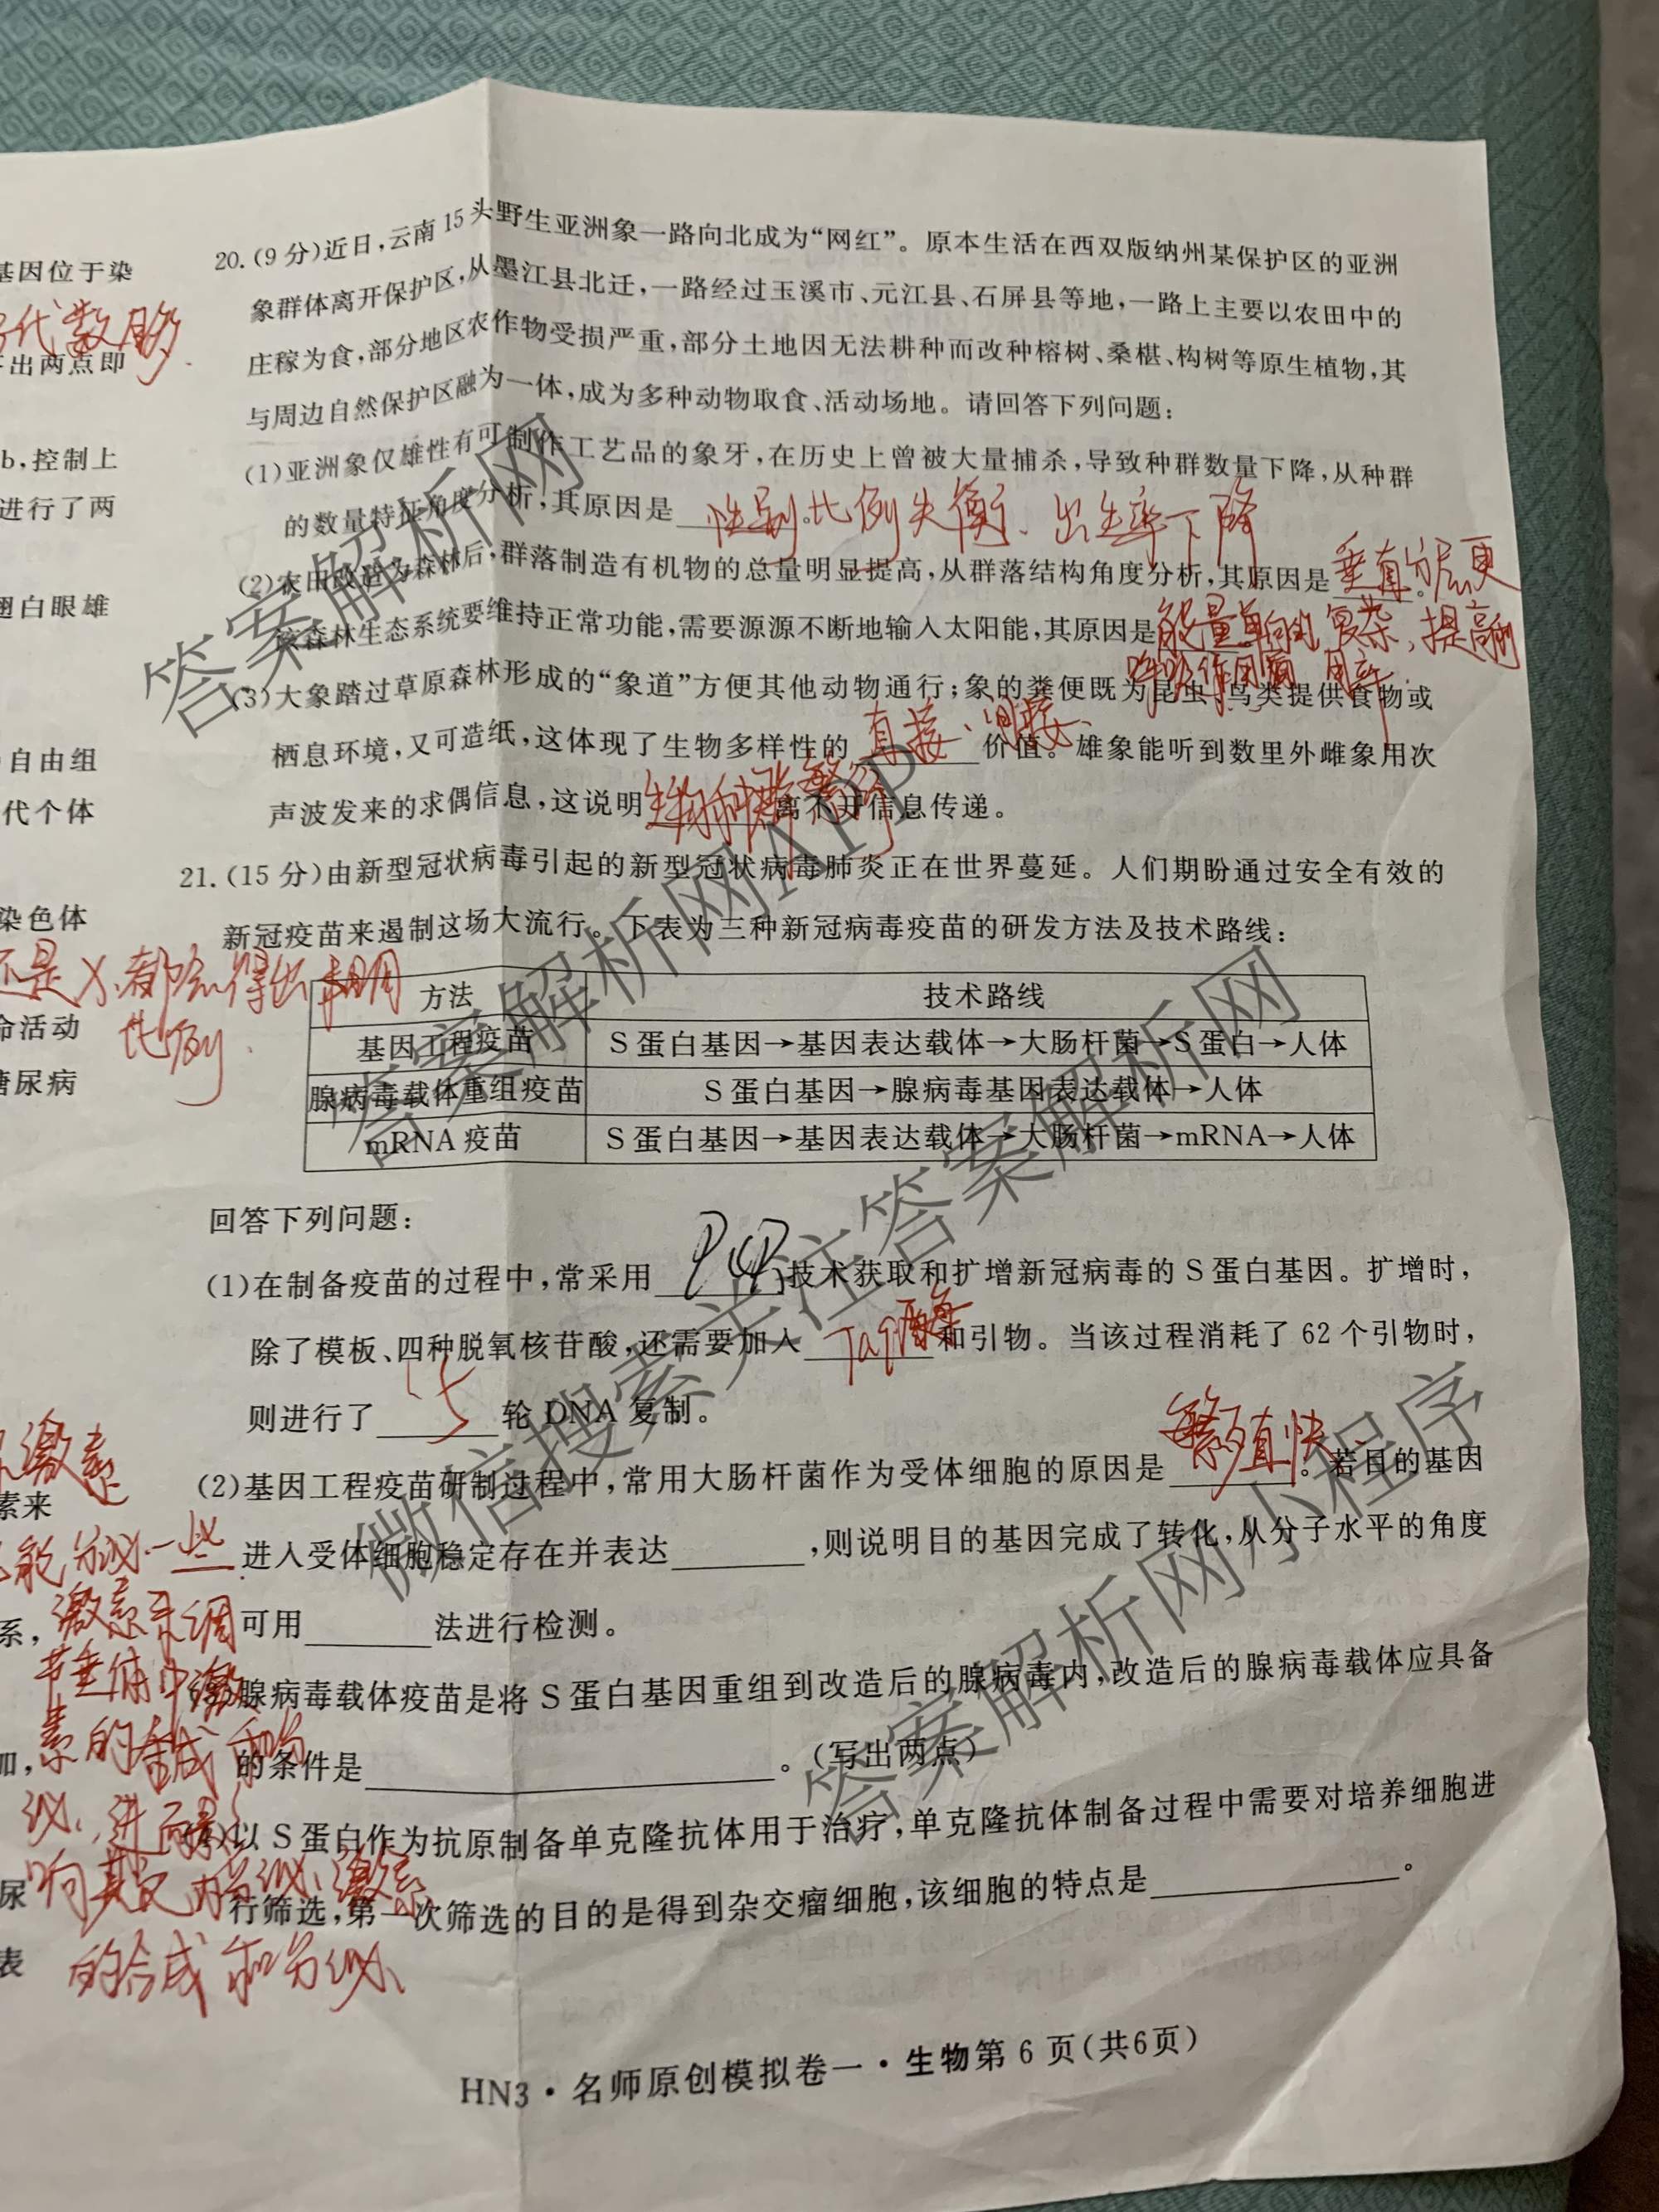 基因位于染
代数够
出两点即
b,控制上
进行了两
翅白眼雄
自由组
代个体
染色体
还是X,都会得出相同
比例.
命活动
糖尿病
激素
素来
能分泌一些
系,
激素来调
节垂体中激
素的合成和分
加,
泌,进而影
响其及
尿
表
的合成和分泌
20.(9分)近日,云南15头野生亚洲象一路向北成为“网红”。原本生活在西双版纳州某保护区的亚洲
象群体离开保护区,从墨江县北迁,一路经过玉溪市、元江县、石屏县等地,一路上主要以农田中的
庄稼为食,部分地区农作物受损严重,部分土地因无法耕种而改种榕树、桑椹、构树等原生植物,其
与周边自然保护区融为一体,成为多种动物取食、活动场地。请回答下列问题:
(1)亚洲象仅雄性有可制作工艺品的象牙,在历史上曾被大量捕杀,导致种群数量下降,从种群
的数量特征角度分析,其原因是性别比例失衡、出生率下降。
(2)农田改造为森林后,群落制造有机物的总量明显提高,从群落结构角度分析,其原因是垂直分层更
复杂,提高利
用率.
该森林生态系统要维持正常功能,需要源源不断地输入太阳能,其原因是能量单向的
呼吸作用消
(3)大象踏过草原森林形成的“象道”方便其他动物通行;象的粪便既为昆虫、鸟类提供食物或
栖息环境,又可造纸,这体现了生物多样性的直接、间接价值。雄象能听到数里外雌象用次
声波发来的求偶信息,这说明生物种群繁衍离不开信息传递。
21.(15分)由新型冠状病毒引起的新型冠状病毒肺炎正在世界蔓延。人们期盼通过安全有效的
新冠疫苗来遏制这场大流行。下表为三种新冠病毒疫苗的研发方法及技术路线:
方法 技术路线
基因工程疫苗 S蛋白基因→基因表达载体→大肠杆菌→S蛋白→人体
腺病毒载体重组疫苗 S蛋白基因→腺病毒基因表达载体→人体
mRNA疫苗 S蛋白基因→基因表达载体→大肠杆菌→mRNA→人体
回答下列问题:
(1)在制备疫苗的过程中,常采用PCR技术获取和扩增新冠病毒的S蛋白基因。扩增时,
除了模板、四种脱氧核苷酸,还需要加入Taq酶和引物。当该过程消耗了62个引物时,
则进行了5轮DNA复制。
(2)基因工程疫苗研制过程中,常用大肠杆菌作为受体细胞的原因是繁殖快。若目的基因
进入受体细胞稳定存在并表达________,则说明目的基因完成了转化,从分子水平的角度
可用________法进行检测。
腺病毒载体疫苗是将S蛋白基因重组到改造后的腺病毒内,改造后的腺病毒载体应具备
的条件是________。(写出两点)
以S蛋白作为抗原制备单克隆抗体用于治疗,单克隆抗体制备过程中需要对培养细胞进
行筛选,第一次筛选的目的是得到杂交瘤细胞,该细胞的特点是________。
HN3·名师原创模拟卷一·生物第6页(共6页)
答案解析网
答案解析网APP
微信搜索关注答案解析网
答案解析网小程序